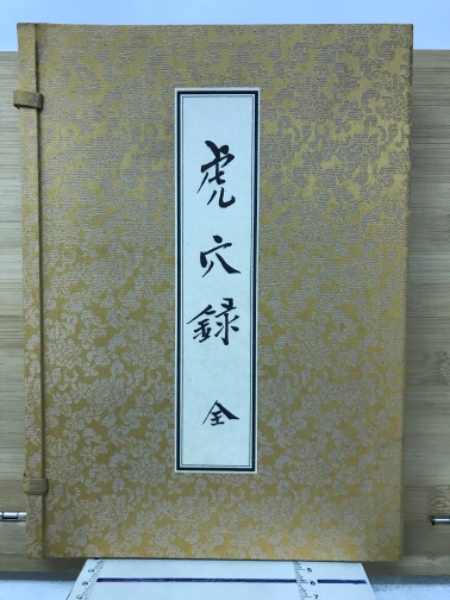 虎穴録 全